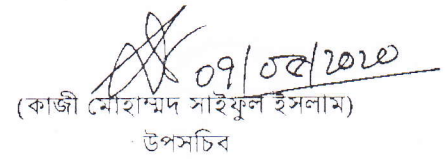 09/05/2020
(কাজী মোহাম্মদ সাইফুল ইসলাম)
উপসচিব